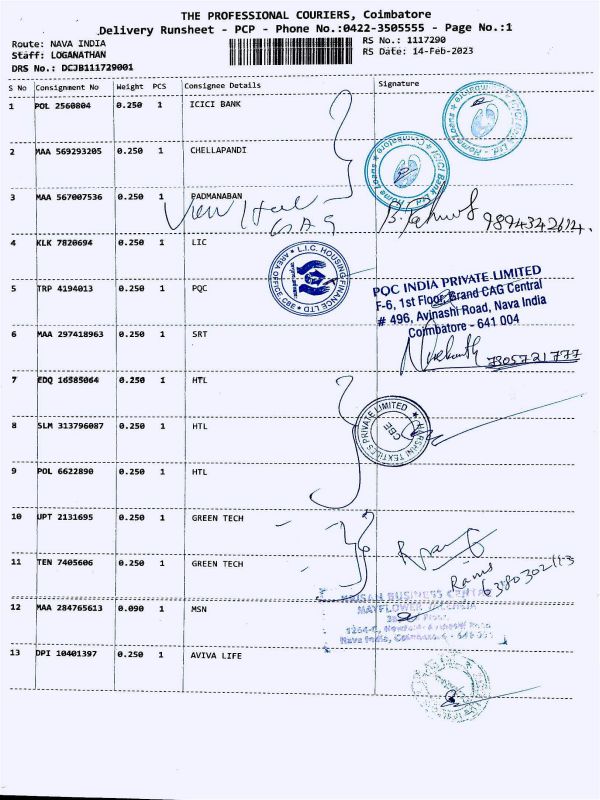 THE PROFESSIONAL COURIERS, Coimbatore
Delivery Runsheet - PCP - Phone No.:0422-3505555 - Page No.:1
Route: NAVA INDIA
Staff: LOGANATHAN
DRS No.: DCJB111729001
RS No.: 1117290
RS Date: 14-Feb-2023
S No Consignment No Weight PCS Consignee Details Signature
1 POL 2560804 0.250 1 ICICI BANK
2 MAA 569293205 0.250 1 CHELLAPANDI
ICICI Bank Ltd
3 MAA 567007536 0.250 1 PADMANABAN
9894342614.
4 KLK 7820694 0.250 1 LIC
L.I.C. HOUSING FINANCE LTD
AREA OFFICE CBE
5 TRP 4194013 0.250 1 PQC
PQC INDIA PRIVATE LIMITED
F-6, 1st Floor, Grand CAG Central
# 496, Avinashi Road, Nava India
Coimbatore - 641 004
6 MAA 297418963 0.250 1 SRT
7305721777
7 EDQ 16585064 0.250 1 HTL
8 SLM 313796087 0.250 1 HTL
TEXTILES PRIVATE LIMITED
CBE
9 POL 6622890 0.250 1 HTL
10 UPT 2131695 0.250 1 GREEN TECH
11 TEN 7405606 0.250 1 GREEN TECH
6380302113
12 MAA 284765613 0.090 1 MSN
BUSINESS CENTRE
MAYFLOWER
13 DPI 10401397 0.250 1 AVIVA LIFE